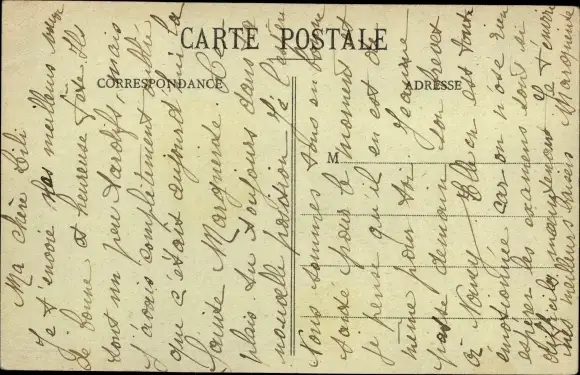 CARTE POSTALE
CORRESPONDANCE
ADRESSE
M
Ma chère Lili
Je t'envoie mes meilleurs vœux
de bonne et heureuse fête. Ils
sont un peu tardifs, mais
j'avais complètement oublié
que c'était aujourd'hui la
Sainte Marguerite. Te
plais tu toujours dans
nouvelle position. Je
Nous sommes tous en bonne
santé pour le moment et
je pense qu'il en est de
même pour toi. Jeanne
passe demain son brevet
à Nancy. Elle en est toute
émotionnée car on n'ose rien
espérer les examens sont si
difficiles maintenant. Je t'envoie
mes meilleurs baisers Marguerite